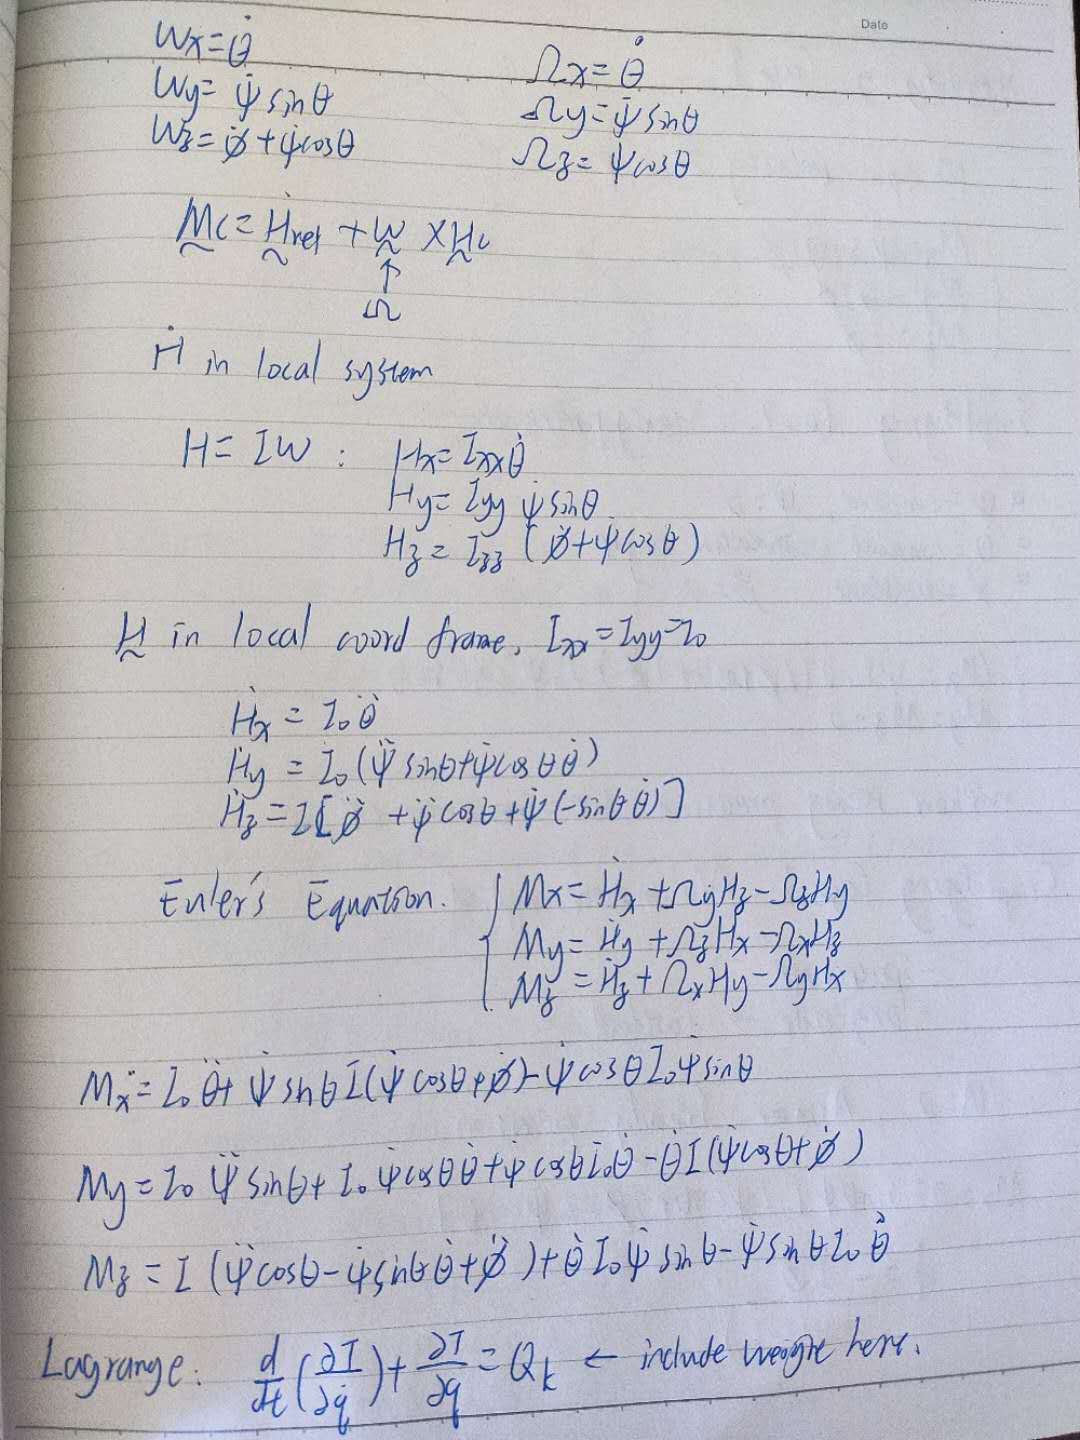 Date
Wx = θ̇
Wy = ψ̇ sinθ
Wz = φ̇ + ψ̇cosθ
Ωx = θ̇
Ωy = ψ̇ sinθ
Ωz = ψ̇cosθ
Mc = Ḣrel + W × Hc
↑
Ω
Ḣ in local system
H = IW : Hx = Ixxθ̇
Hy = Iyy ψ̇ sinθ
Hz = Izz (φ̇ + ψ̇cosθ)
H in local coord frame. Ixx = Iyy = I₀
Ḣx = I₀θ̈
Ḣy = I₀(ψ̈ sinθ + ψ̇cosθθ̇)
Ḣz = I[φ̈ + ψ̈cosθ + ψ̇(-sinθθ̇)]
Euler's Equation. { Mx = Ḣx + ΩyHz - ΩzHy
My = Ḣy + ΩzHx - ΩxHz
Mz = Ḣz + ΩxHy - ΩyHx
Mx = I₀θ̈ + ψ̇ sinθ I(ψ̇cosθ + φ̇) - ψ̇cosθ I₀ψ̇sinθ
My = I₀ ψ̈ sinθ + I₀ ψ̇cosθθ̇ + ψ̇cosθI₀θ̇ - θ̇I(ψ̇cosθ + φ̇)
Mz = I (ψ̈cosθ - ψ̇sinθθ̇ + φ̈) + θ̇ I₀ψ̇ sinθ - ψ̇sinθ I₀ θ̇
Lagrange: d/dt (∂T/∂q̇) + ∂T/∂q = Qk ← include weight here.